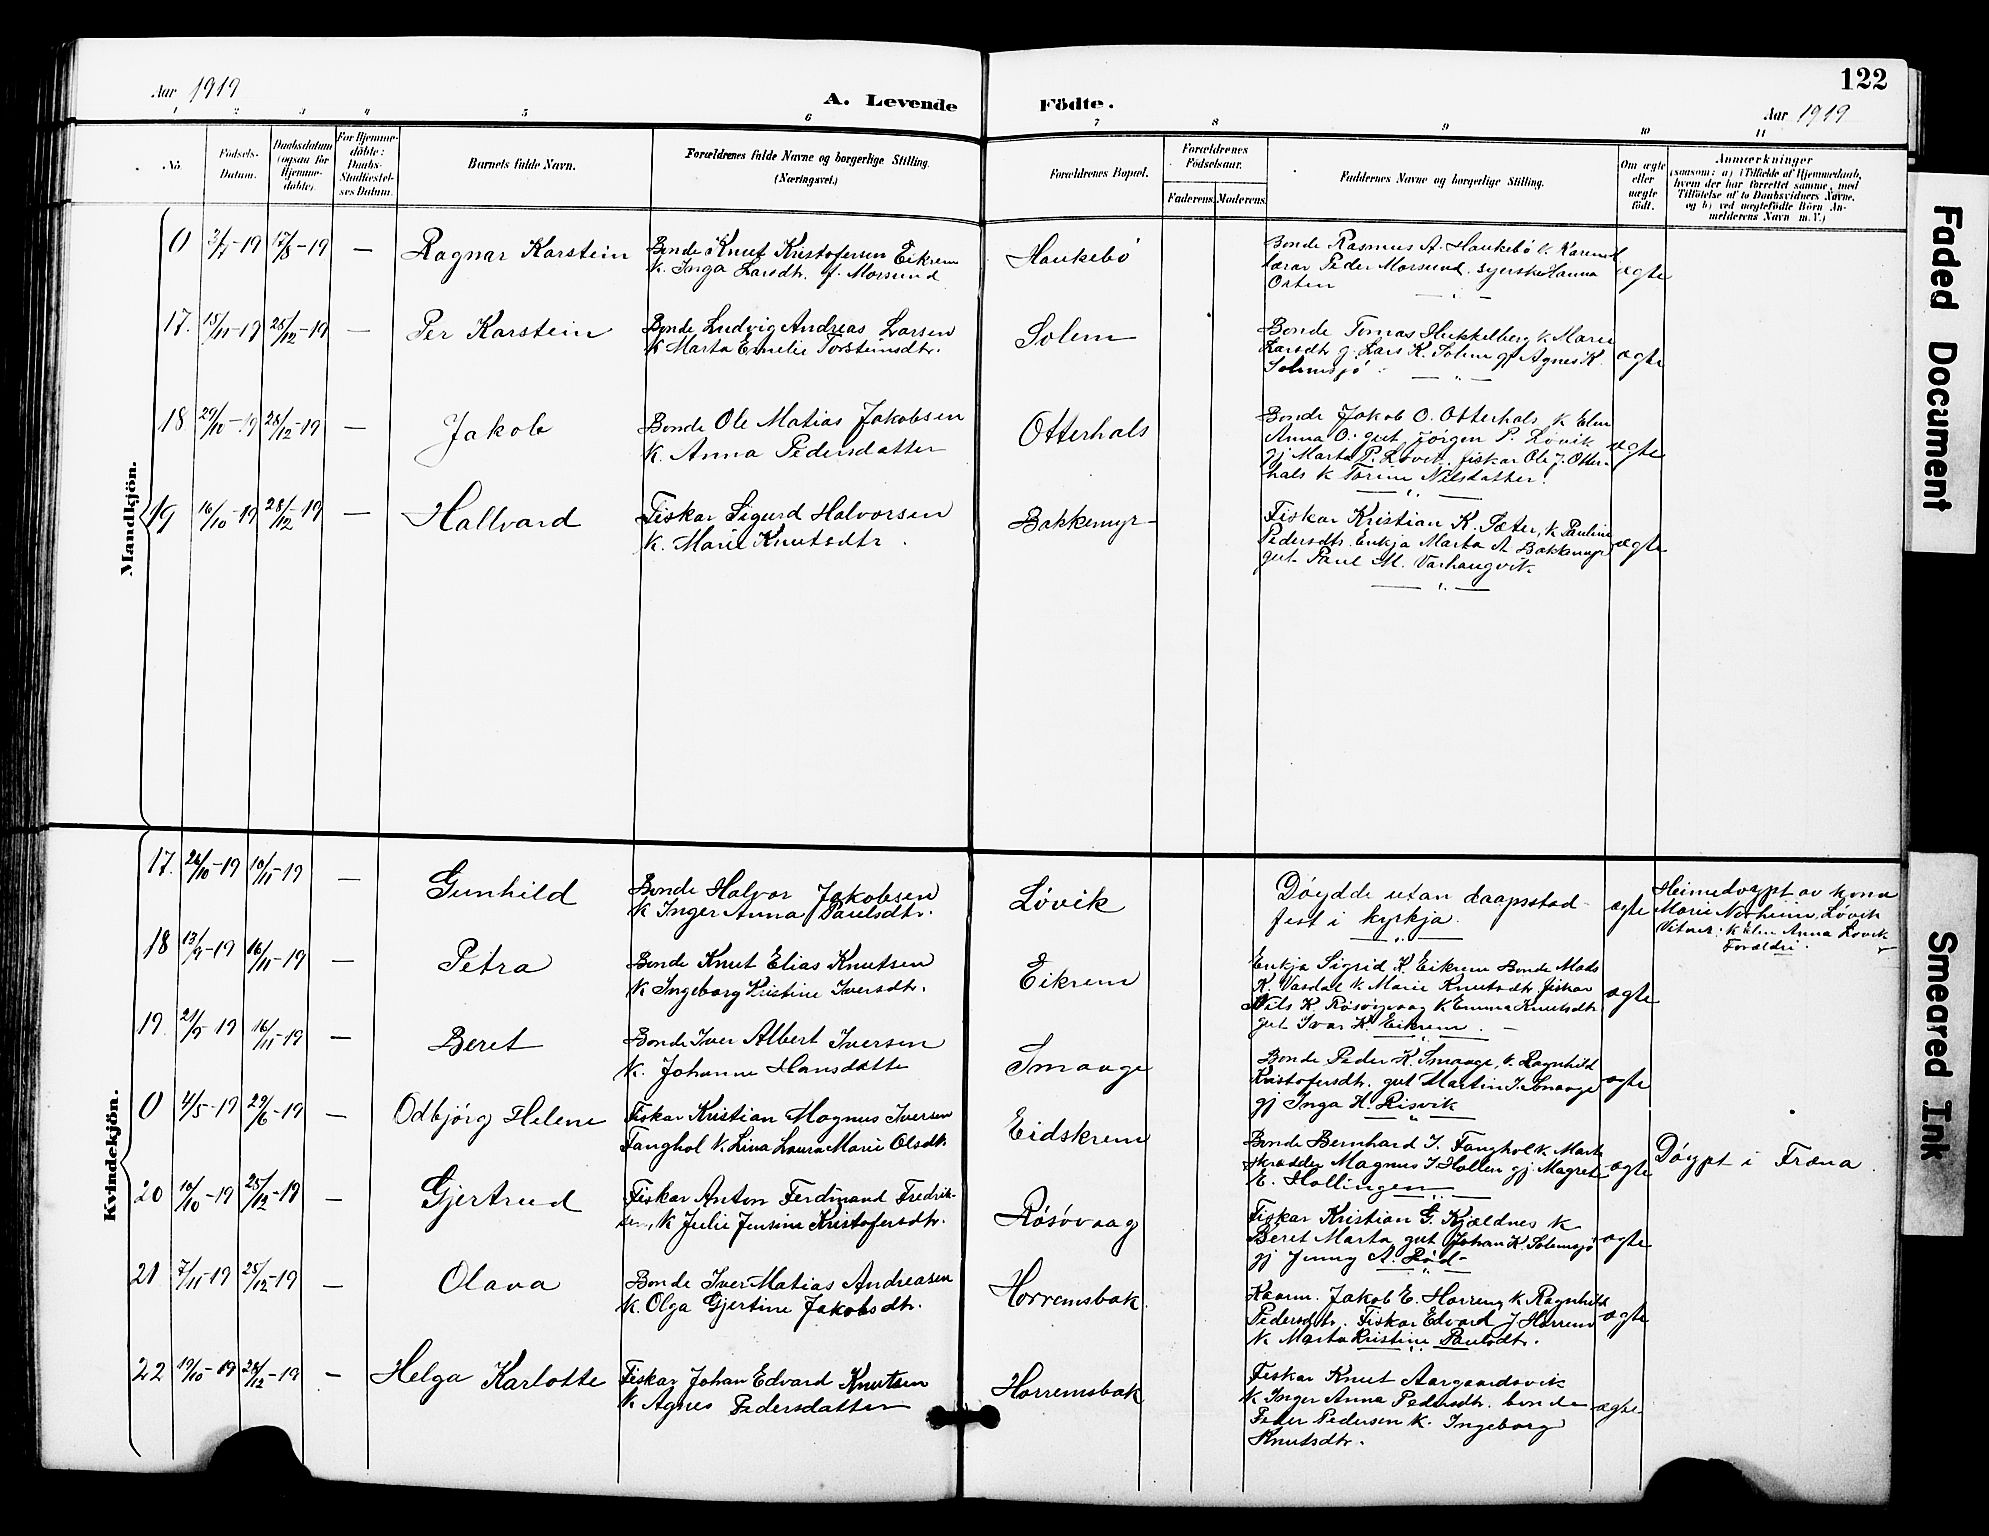 Aar 1919
A. Levende Födte.
122
Aar 1919
1 2 3 4 5 6 7 8 9 10 11
No.
Födsels-
Datum.
Daabsdatum
(ogsaa for
Hjemme-
döbte).
For Hjemme-
döbte:
Daabs-
Stadfæstel-
ses Datum.
Barnets fulde Navn.
Forældrenes fulde Navne og borgerlige Stilling.
(Næringsvei.)
Forældrenes Bopæl.
Forældrenes
Födselsaar.
Faderens. Moderens.
Faddernes Navne og borgerlige Stilling.
Om ægte
eller
uægte
födt.
Anmærkninger
(saasom: a) i Tilfælde af Hjemmedaab,
hvem der har forrettet samme, med
Tilföielse af to Daabsvidners Navne.
og b) ved uægtefödte Börn An-
melderens Navn m. V.)
Mandkjön.
0 3/7-19 17/8-19 — Ragnar Karstein
Bonde Knut Kristofersen Eikrem
K. Inga Larsdtr. f. Morsund
Haukebö
Bonde Rasmus A. Haukebö K. Karen
lærar Peder Morsund. syerske Hanna
Orten
ægte
17. 15/11-19 28/12-19 — Per Karstein
Bonde Ludvig Andreas Larsen
K Marta Emelie Torsteinsdtr.
Solem
Bonde Tomas Hukkelberg K. Marie
Larsdtr g. Lars K. Solem gj Agnes K.
Solemsjö
ægte
18 29/10-19 28/12-19 — Jakob
Bonde Ole Matias Jakobsen
K. Anna Pedersdatter
Otterhals
Bonde Jakob O. Otterhals K Elen
Anna O. gut Jörgen P. Lövik
gj Marta P. Lövik. fiskar Ole J. Otter-
hals K Torine Nilsdatter.
ægte
19 16/10-19 28/12-19 — Hallvard
Fiskar Sigurd Halvorsen
K. Marie Knutsdtr.
Bakkemyr
Fiskar Kristian K. Sæter, K Pauline
Pedersdtr. Enkja Marta A Bakkemyr
gut Paul M. Varhaugvik
ægte
Kvindekjön.
17. 24/10-19 10/11-19 — Gunhild
Bonde Halvor Jakobsen
K Inger Anna Paulsdtr.
Lövik
Döydde utan daapsstad-
fest i kyrkja.
ægte
Heimedöypt av kona
Marie Norheim, Lövik
Vitner: K Elen Anna Lövik
Forældri.
18 13/9-19 16/11-19 — Petra
Bonde Knut Elias Knutsen
K Ingeborg Kristine Iversdtr.
Eikrem
Enkja Sigrid K. Eikrem Bonde Mads
K. Vasdal K Marie Knutsdtr. fiskar
Nils K. Rösövaag K Emma Knutsdtr.
gut Ivar K Eikrem.
ægte
19. 21/9-19 16/11-19 — Beret
Bonde Iver Albert Iversen
K. Johanne Hansdatter
Smaage
Bonde Peder K. Smaage, K. Ragnhild
Kristofersdtr. gut Martin I. Smaage
gj Inga H. Risvik
ægte
0 4/5-19 29/6-19 — Odbjörg Helene
Fiskar Kristian Magnus Iversen
Tanghol K. Lina Laura Marie Olsdtr
Eidskrem
Bonde Bernhard I. Tanghol K. Marta
skrædder Magnus I Hollen gj Magret
E. Hollingen
ægte
Döypt i Fræna
20 10/10-19 25/12-19 — Gjertrud
Fiskar Anton Ferdinand Fredrik-
sen, K Julie Jensine Kristofersdtr.
Rösövaag
Fiskar Kristian G. Kjældnes K
Beret Marta gut Johan K. Solemsjö
gj Jenny A. Röd
ægte
21 7/11-19 25/12-19 — Olava
Bonde Iver Matias Andreasen
K. Olga Gjertine Jakobsdtr.
Horremsbak.
Kaarm. Jakob E. Horrem K Ragnhild
Pedersdtr. Fiskar Edvard J Horrem
K Marta Kristine Paulsdtr.
ægte
22 19/10-19 28/12-19 — Helga Karlotte
Fiskar Johan Edvard Knutsen
K Agnes Pedersdatter
Horremsbak
Fiskar Knut Aargaardsvik
K Inger Anna Pedersdtr. bonde
Peder Pedersen K. Ingeborg
Knutsdtr.
ægte
Faded Document
Smeared Ink